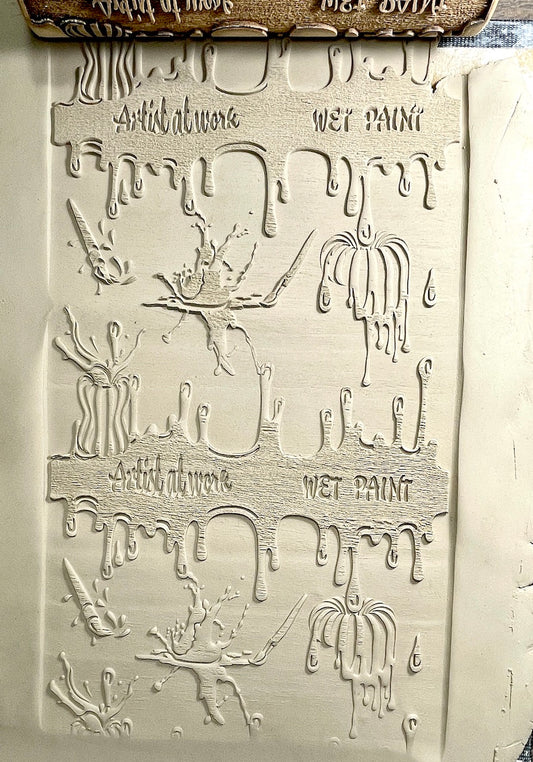 Artist at work WET PAINT
Artist at work WET PAINT